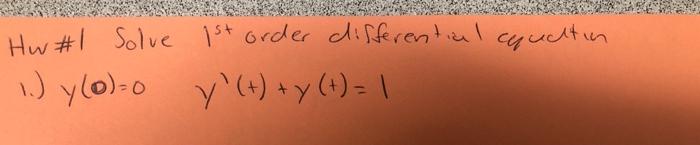 Hw #1 Solve 1st order differential equation
1.) y(0)=0 y'(t) + y(t) = 1